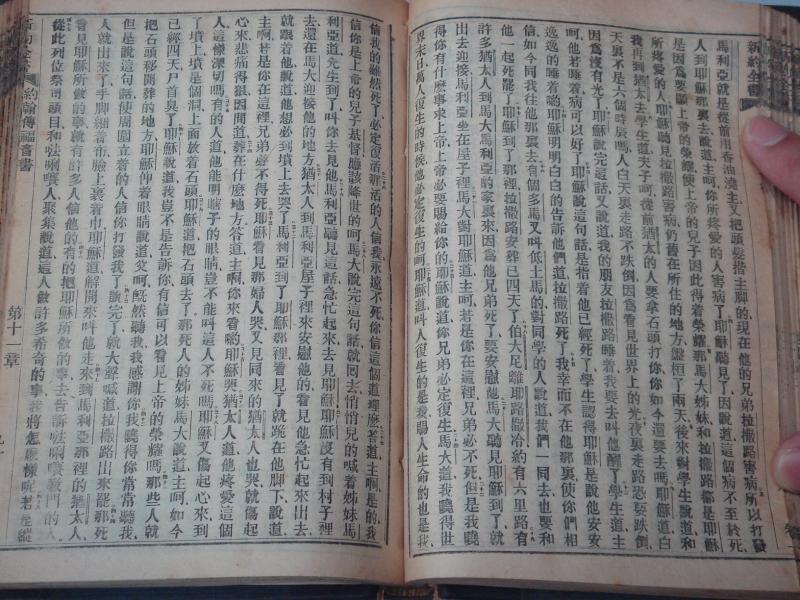 新約全書
馬利亞就是從前用香油澆主又把頭髮揩主脚的現在他的兄弟拉撒路害病所以打發
人到耶穌那裏去說道主呵你所疼愛的人害病了耶穌聽見了因說道這個病不至於死
是因爲要顯上帝的榮耀使上帝的兒子因此得着榮耀那馬大姊妹和拉撒路都是耶穌
所疼愛的人耶穌聽見拉撒路害病仍舊在所住的地方盤桓了兩天後來對學生說道和
我再到猶太去學生道夫子呵從前猶太的人要拿石頭打你你如今還要去嗎耶穌道白
天裏不是六個時辰嗎人白天裏走路不跌倒因爲看見世界上的光夜裏走路恐㤲跌倒
因爲沒有光了耶穌說完這話又說道我的朋友拉撒路睡着我要去叫他醒了學生說道
他睡着若睡着病可以好了耶穌說這句話是指着他已經死了學生認得耶穌是說他安安
逸逸的睡着哟耶穌明明白白的告訴他們道拉撒路死了我幸而不在他那裏使你們相
信如今同我往他那裏去有個多馬又叫低土馬的對同學的人說道我們一同去也要和
他一起死罷了耶穌到了那裡拉撒路安葬已四天了伯大尼離耶路撒冷約有六里路有
許多猶太人到馬大馬利亞的家裏來因爲他兄弟死了要安慰他馬大聽見耶穌到了就
出去迎接馬利亞坐在屋子裡馬大對耶穌道主呵若是你在這裡兄弟必不死但是我曉
得你什麽事求上帝上帝必要賜給你的耶穌說道你兄弟必定復生馬大道我曉得世
界末日萬人復生的時候他必定復生的呵耶穌道叫人復生的是我賜人生命的也是我
信我的雖然死了必定復活那活的人信我永遠不死你信這個道理麽答道主啊是的我
信你是上帝的兒子基督應該降世的呵說完這句話就回去悄悄兒的喊着姊妹馬
利亞道先生到了叫你去見他馬利亞聽見這話急忙起來去見耶穌耶穌沒有到村子裡
去還在馬大迎接他的地方猶太人到馬利亞屋子裡來安慰他的看見他急忙起來出去
就跟着他說道他想必到墳上去哭了馬利亞到了耶穌那裡看見了就跪在他脚下說道
主啊若是你在這裡兄弟必不得死耶穌看見那婦人哭又見同來的猶太人也哭就傷起
心來悲痛得狠因問道葬在什麽地方答道主啊你來看哟耶穌哭猶太人道他疼愛這個
人這樣深切嗎有的人道他能明瞎子的眼睛豈不能叫這人不死嗎耶穌又傷起心來到
了墳上墳是個洞上面放着石頭耶穌道把石頭去了那死人的姊妹馬大說道主呵如今
已經四天尸首臭了耶穌說道我豈不是告訴你有信可以看見上帝的榮耀嗎那些人就
把石頭移開葬的地方耶穌仰着眼睛說道父呵既然聽我我感謝你我曉得你常常聽我
但是說這句話使周圍立着的人信你打發我了說完了就大聲喊道拉撒路出來罷那死
人就出來了手脚細着布臉上裹着巾耶穌道解開來叫他走來到馬利亞那裡的猶太人
看見耶穌所做的事就有許多人信他的有的把耶穌所做的事去告訴㕹唎㘔教門的人
從此列位祭司頭目和㕹唎㘔人聚集說道這人做許多希奇的事我將怎麽樣呢若是縱
新約全書 約翰傳福音書
第十一章